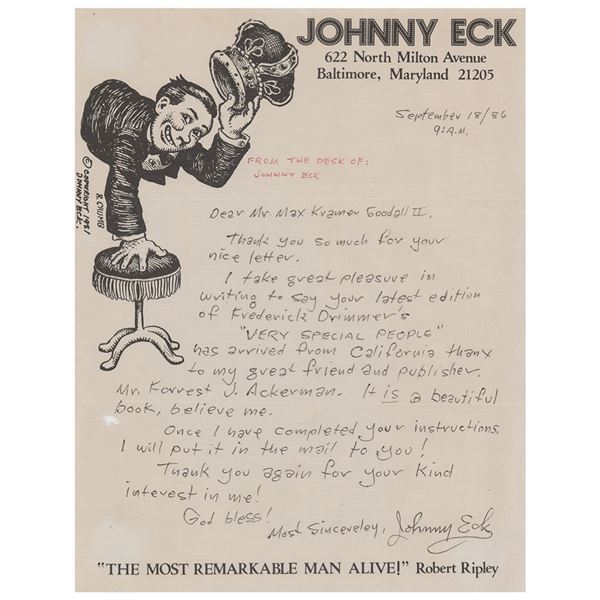 JOHNNY ECK
622 North Milton Avenue
Baltimore, Maryland 21205
September 18/86
9:A.M.
© COPYRIGHT 1981
JOHNNY ECK.
R. CRUMB
FROM THE DESK OF:
JOHNNY ECK
Dear Mr. Max Kramer Goodall II.
Thank you so much for your
nice letter.
I take great pleasure in
writing to say your latest edition
of Frederick Drimmer's
"VERY SPECIAL PEOPLE"
has arrived from California thanx
to my great friend and publisher,
Mr. Forrest J. Ackerman. It is a beautiful
book, believe me.
Once I have completed your instructions
I will put it in the mail to you!
Thank you again for your kind
interest in me!
God bless!
Most Sinceveley, Johnny Eck
"THE MOST REMARKABLE MAN ALIVE!" Robert Ripley